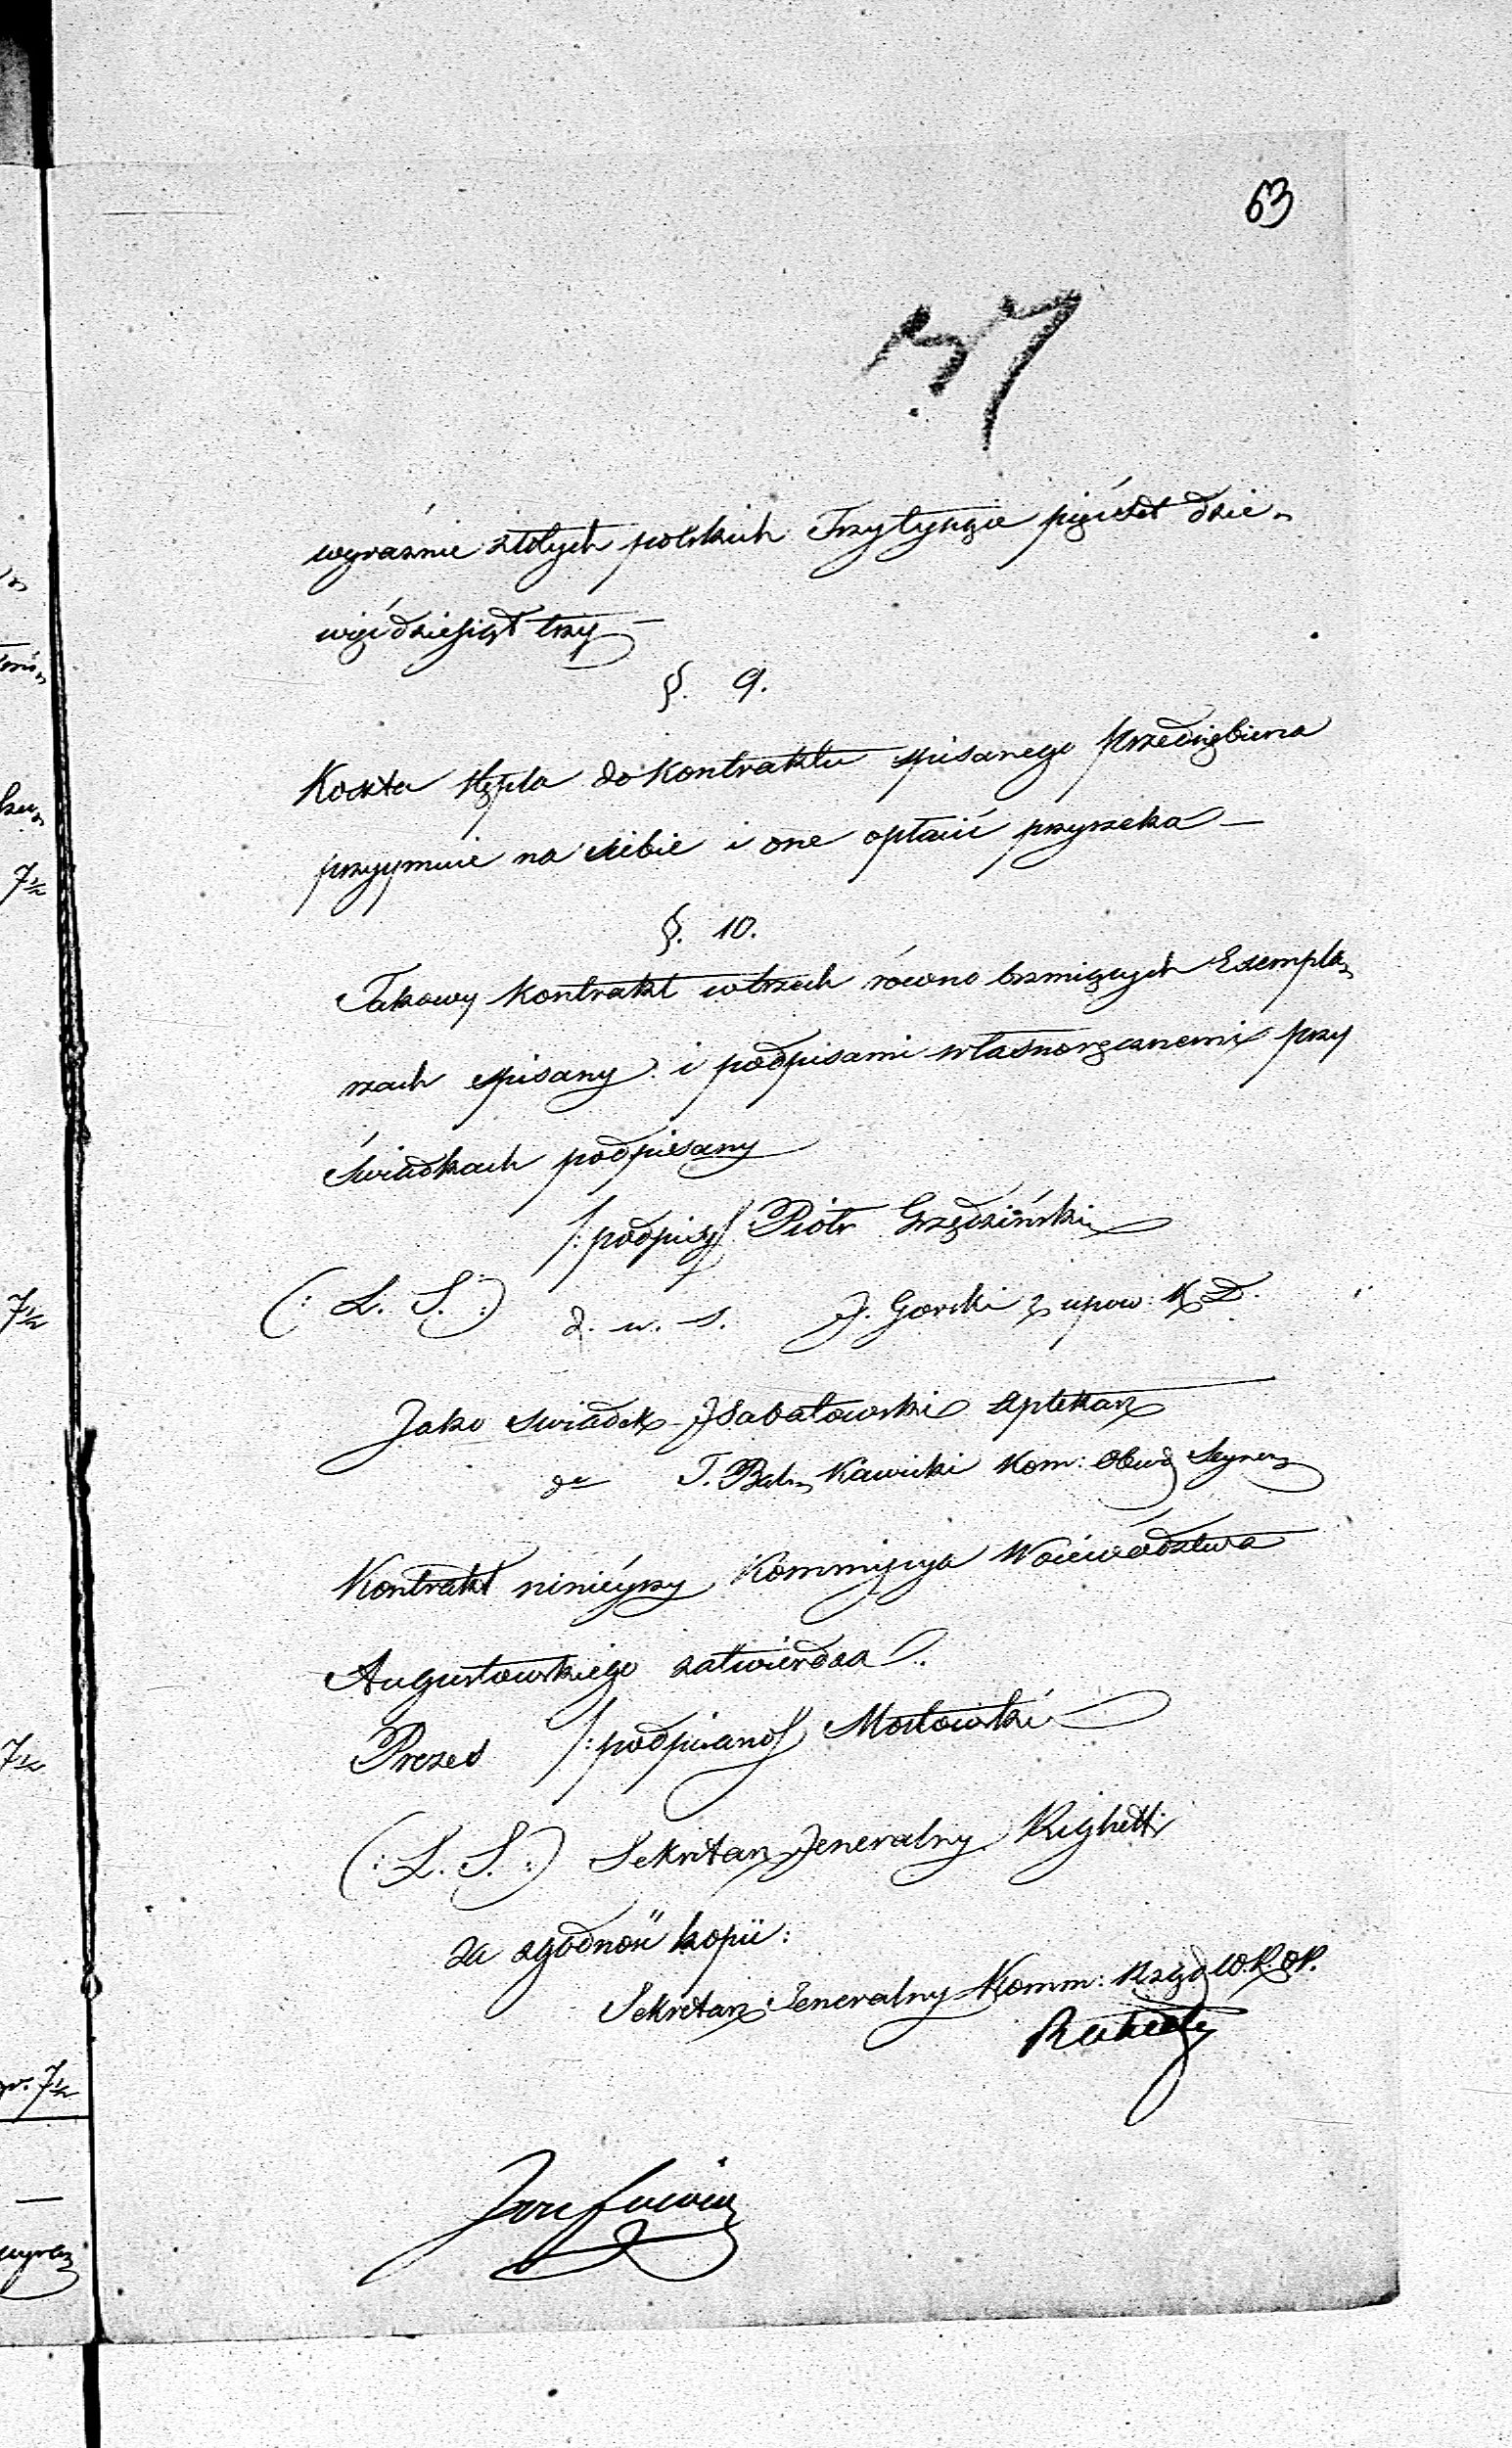 63
57
wyraźnie złotych polskich Trzytysące pięćset dzie-
więćdziesiąt trzy —
§. 9.
Koszta stępla do kontraktu spisanego przedsiębierca
przyymuie na siebie i one opłacić przyrzeka —
§. 10.
Takowy kontrakt w trzech równo brzmiących Exempla-
rzach spisany i podpisami własnoręcznemi przy
świadkach podpisany
/:podpis:/ Piotr Grzędziński
(: L. S. :) d. u. s. J. Gorski z upow: K. D.
Jako swiadek J Sabatowski Aptekarz
do T. Kawicki Kom: Obwo Seyne
Kontrakt ninieyszy Kommissya Woiewództwa
Augustowskiego zatwierdza.
Prezes /:podpisano:/ Mostowski
(: L. S. :) Sekretarz Jeneralny Righetti
za zgodność kopii:
Sekretarz Jeneralny Komm: Rząd W. R. i O. P.